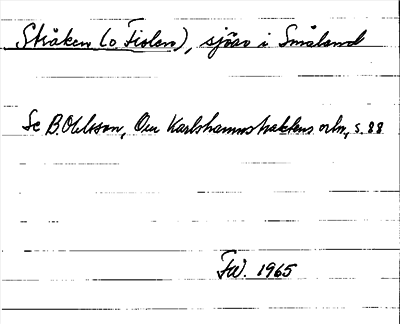 Stråken (o Fiolen), sjöar i Småland
Se B. Ohlsson, Om Karlshamnstraktens ortn, s. 88
FW. 1965